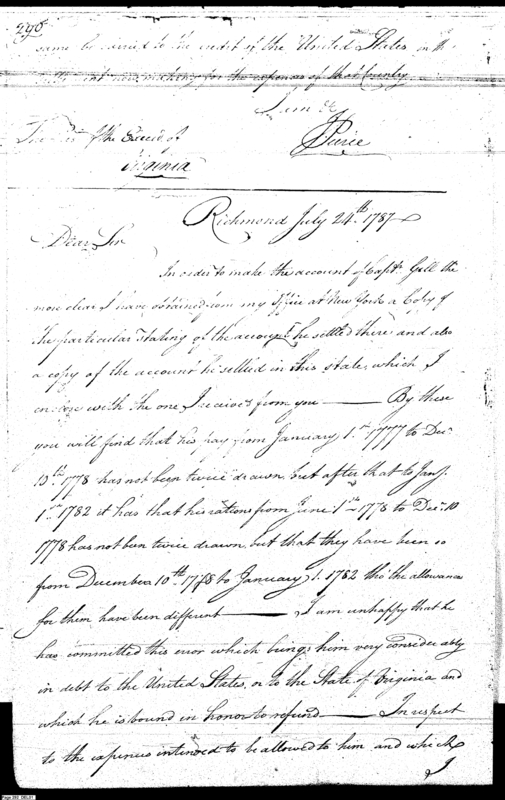 290
same be carried to the credit of the United States in the
now making for the expences of that County
I am &c
J Pierce
of the Execut. of
Virginia
Richmond July 24th 1787
Dear Sir
In order to make the account of Captn. Gill the
more clear I have obtained from my Office at New York a Copy of
the particular Stating of the account he settled there and also
a copy of the account he settled in this state, which I
enclose with the one I received from you — By these
you will find that his pay from January 1st 1777 to Decr
10th 1778 has not been twice drawn but after that to Jany.
1st 1782 it has that his rations from June 1st 1778 to Decr. 10
1778 has not been twice drawn but that they have been so
from December 10th 1778 to January 1. 1782 tho' the allowance
for them have been different — I am unhappy that he
has committed this error which brings him very considerably
in debt to the United States, or to the State of Virginia and
which he is bound in honor to refund — In respect
to the expences intended to be allowed to him and which
I
Page 290